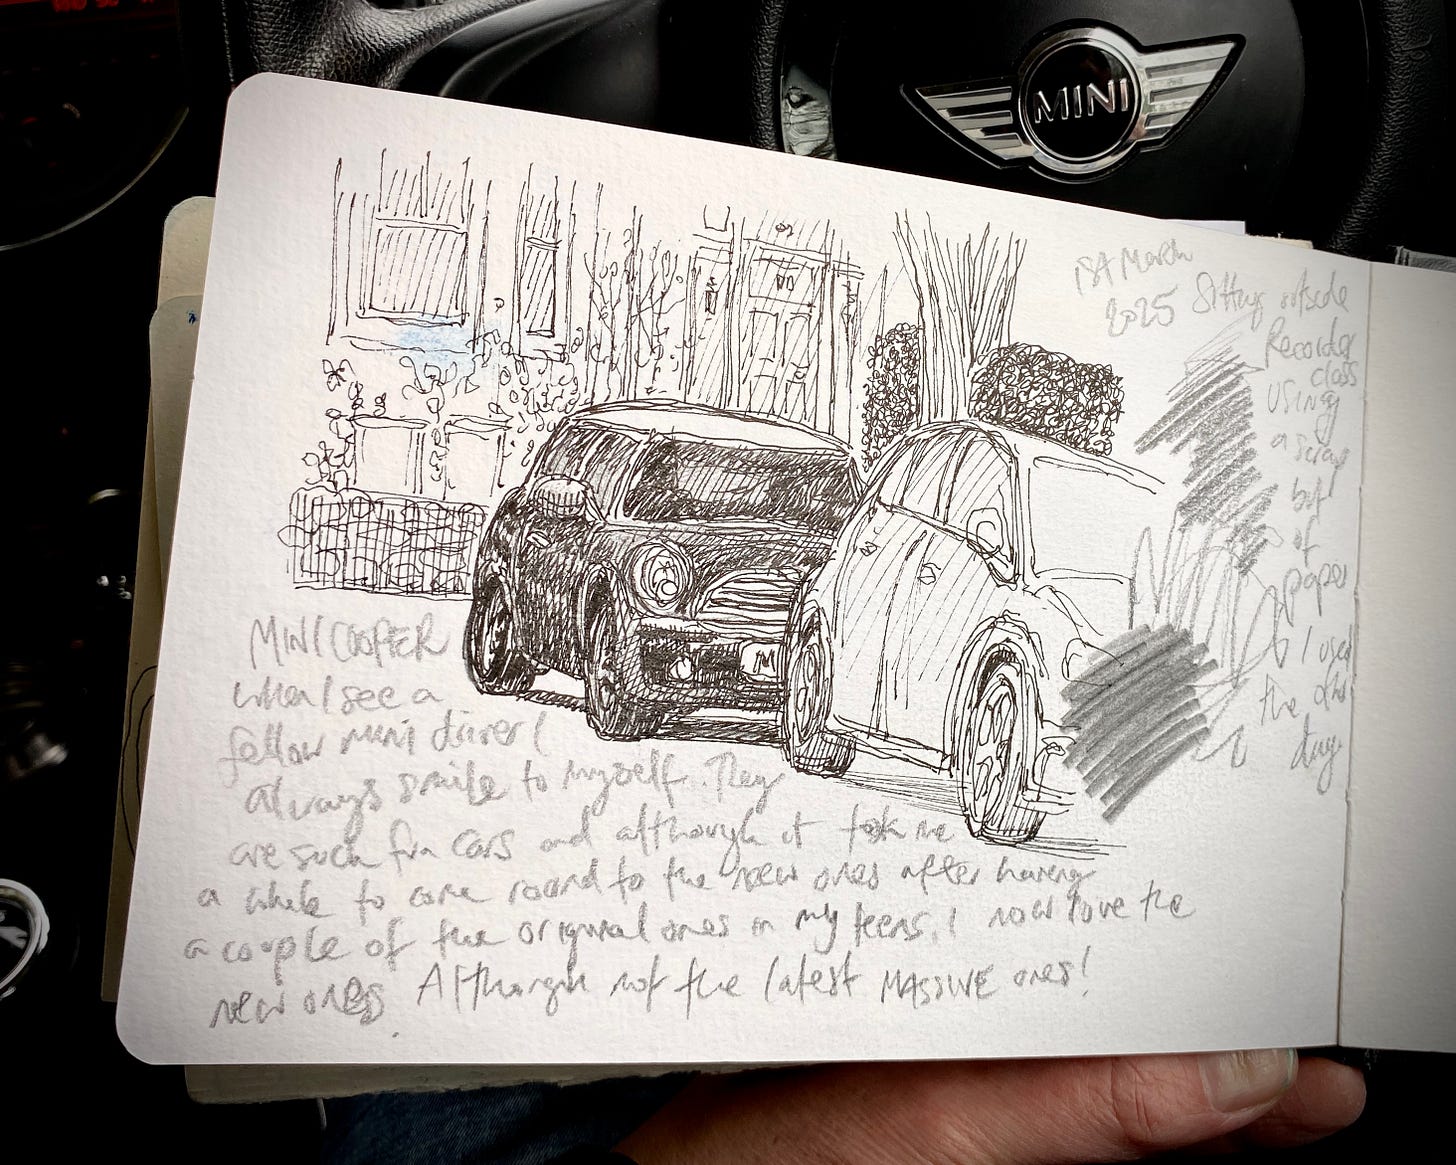 MINI
1st March
2025 Sitting outside
Recorder
class
using
a scrap
bit
of
paper
I used
the other
day
MINI COOPER
when I see a
fellow mini driver I
always smile to myself. They
are such fun cars and although it took me
a while to come round to the new ones after having
a couple of the original ones in my teens, I now love the
new ones. Although not the latest MASSIVE ones!